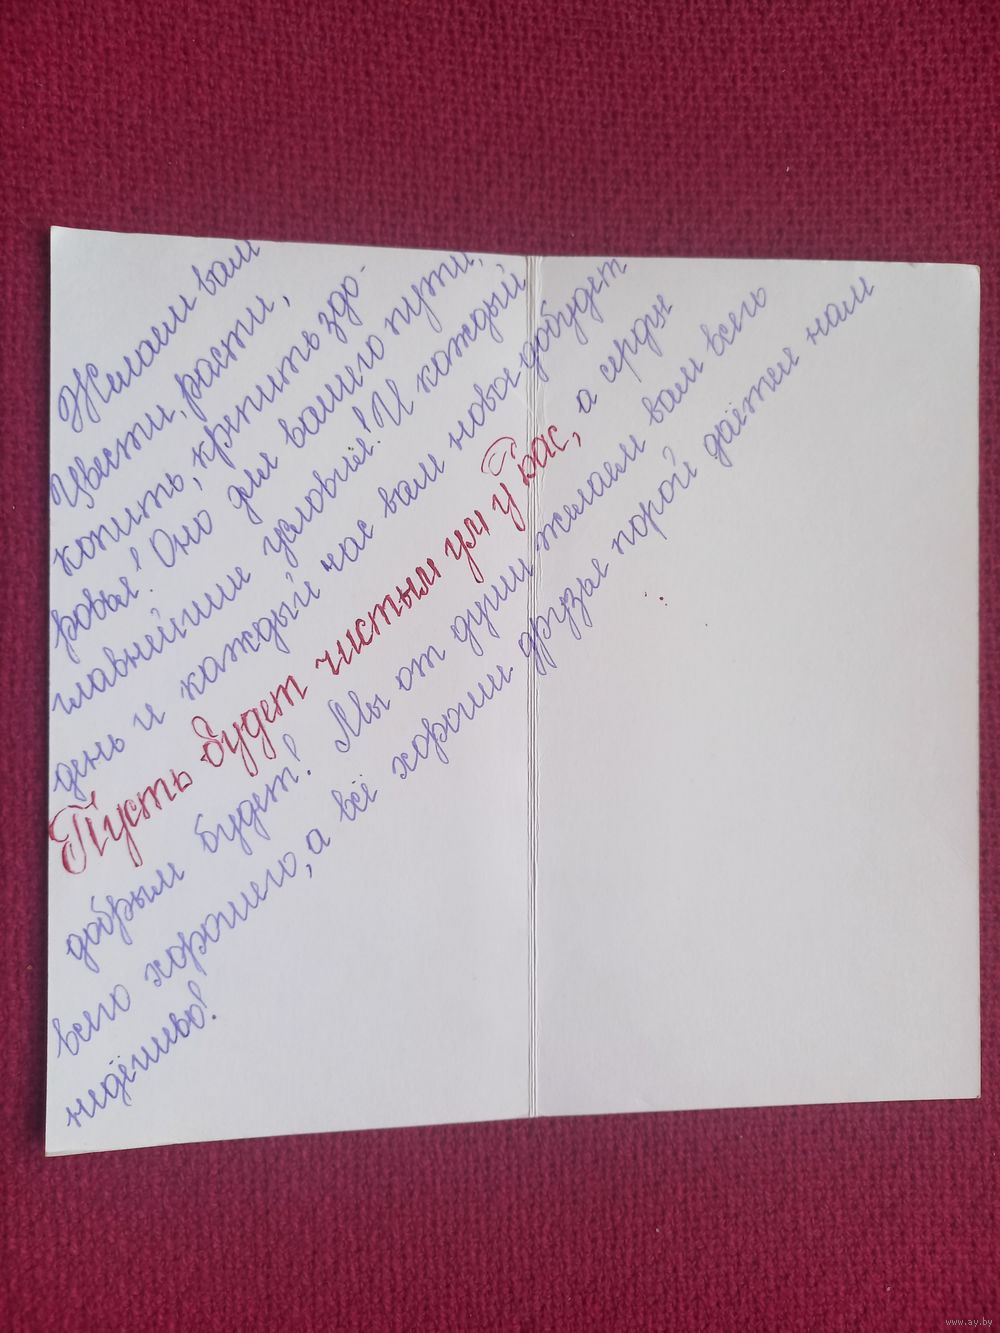 Желаем вам
Цвести, расти,
копить, крепить здо-
ровье! Оно для вашего пути,
главнейшее условье! И каждый
день и каждый час вам новы добудет
Пусть будет чистым ум у Вас, а сердце
добрым будет! Мы от души желаем вам всего
всего хорошего, а всё хорошее друзья порой даётся нам
недёшево!
www.ay.by